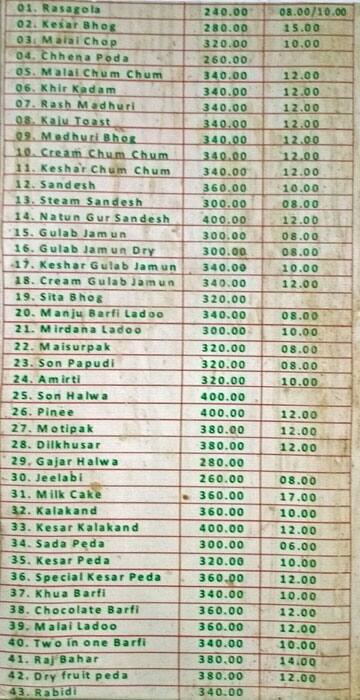 01. Rasagola 240.00 08.00/10.00
02. Kesar Bhog 280.00 15.00
03. Malai Chop 320.00 10.00
04. Chhena Poda 260.00
05. Malai Chum Chum 340.00 12.00
06. Khir Kadam 340.00 12.00
07. Rash Madhuri 340.00 12.00
08. Kaju Toast 340.00 12.00
09. Madhuri Bhog 340.00 12.00
10. Cream Chum Chum 340.00 12.00
11. Keshar Chum Chum 340.00 12.00
12. Sandesh 360.00 10.00
13. Steam Sandesh 300.00 08.00
14. Natun Gur Sandesh 400.00 12.00
15. Gulab Jamun 300.00 08.00
16. Gulab Jamun Dry 300.00 08.00
17. Keshar Gulab Jamun 340.00 10.00
18. Cream Gulab Jamun 340.00 12.00
19. Sita Bhog 320.00
20. Manju Barfi Ladoo 340.00 08.00
21. Mirdana Ladoo 300.00 10.00
22. Maisurpak 320.00 08.00
23. Son Papudi 320.00 08.00
24. Amirti 320.00 10.00
25. Son Halwa 400.00
26. Pinee 400.00 12.00
27. Motipak 380.00 12.00
28. Dilkhusar 380.00 12.00
29. Gajar Halwa 280.00
30. Jeelabi 260.00 08.00
31. Milk Cake 360.00 17.00
32. Kalakand 360.00 10.00
33. Kesar Kalakand 400.00 12.00
34. Sada Peda 300.00 06.00
35. Kesar Peda 320.00 10.00
36. Special Kesar Peda 360.00 12.00
37. Khua Barfi 340.00 10.00
38. Chocolate Barfi 360.00 12.00
39. Malai Ladoo 360.00 12.00
40. Two in one Barfi 340.00 10.00
41. Raj Bahar 380.00 14.00
42. Dry fruit peda 380.00 12.00
43. Rabidi 340.00